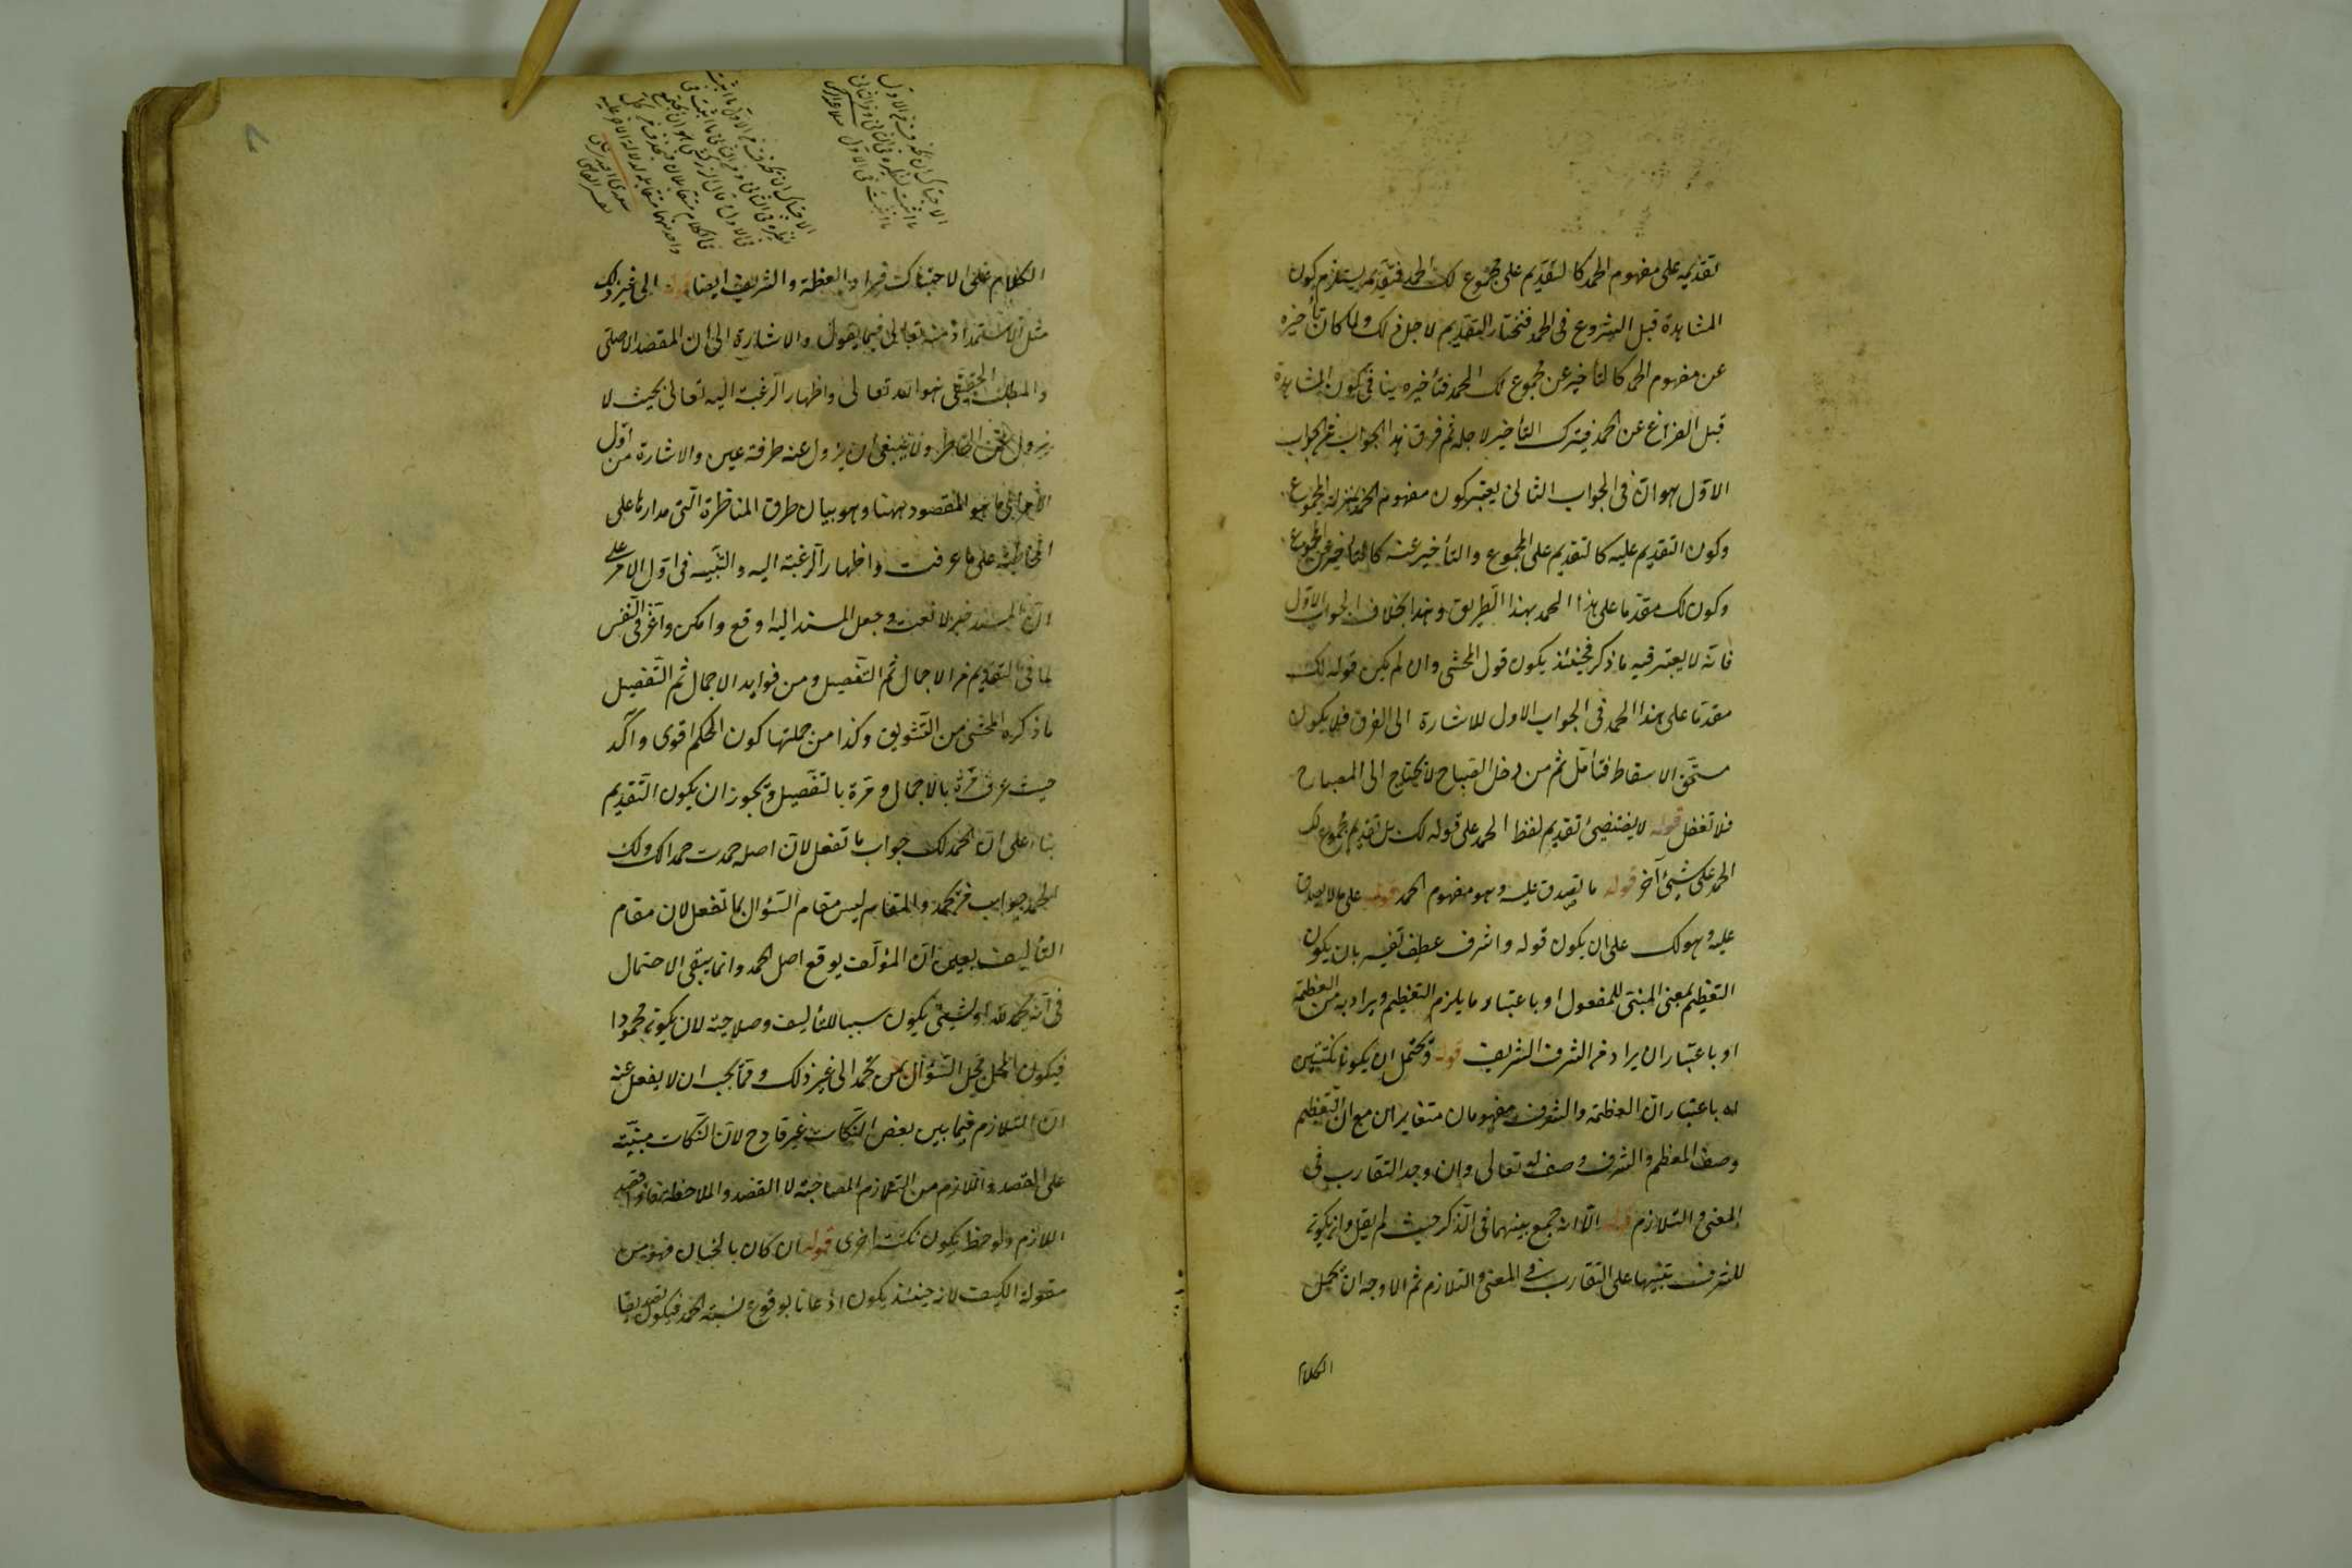 تقديمه على مفهوم الحمد كالتقديم على مجموع لك الحمد فتقديمه يستلزم كون
المشاهدة قبل الشروع فى الحمد فنختار التقديم لاجل ذلك ولما كان تأخيره
عن مفهوم الحمد كالتأخير عن مجموع لك الحمد فتأخيره ينافى كون المشاهدة
قبل الفراغ عن الحمد فيترك التأخير لاجله ثم فرق هذا الجواب من الجواب
الاول هو ان فى الجواب الثانى يعتبر كون مفهوم الحمد بمنزلة المجموع
وكون التقديم عليه كالتقديم على المجموع والتأخير عنه كالتأخير عن المجموع
وكون لك مقدما على هذا الحمد بهذا الطريق وهذا بخلاف الجواب الاول
فانه لا يعتبر فيه ما ذكر فحينئذ يكون قول المحشى وان لم يكن قوله لك
مقدما على هذا الحمد فى الجواب الاول للاشارة الى الفرق فلا يكون
مستحق الاسقاط فتأمل ثم من دخل الصباح لا يحتاج الى المصباح
فلا تغفل قوله لا يقتضى تقديم لفظ الحمد على قوله لك بل تقديم مجموع لك
الحمد على شيئ آخر قوله ما يصدق عليه وهو مفهوم الحمد قوله على ما لا يصدق
عليه وهو لك على ان يكون قوله واشرف عطف تفسير بان يكون
التعظيم بمعنى المبنى للمفعول او باعتبار ما يلزم التعظيم ويراد به من العظمة
او باعتبار ان يراد من الشرف الشريف قوله ويحتمل ان يكونا نكتتين
له باعتبار ان العظمة والشرف مفهومان متغايران مع ان التعظيم
وصف المعظم والشرف وصف له تعالى وان وجد التقارب فى
المعنى والتلازم قوله الا انه جمع بينهما فى الذكر حيث لم يقل وان يكون
للشرف تنبيها على التقارب فى المعنى والتلازم ثم الاوجه ان يحمل
الكلام
الاحتباك ان يحذف من الاول
ما اثبت نظيره فى الثانى ومن الثانى
ما اثبت فى الاول
الاحتباك ان يحذف من الاول ما اثبت
نظيره فى الثانى ومن الثانى ما اثبت فى
فى الاول قال الزركشى هو ان يجتمع
فى الكلام متقابلان فيحذف من كل
واحد منهما مقابله لدلالة الاخر عليه
الكلام على الاحتباك فيراد العظمة والشريف ايضا قوله الى غير ذلك
مثل الاستمداد منه تعالى فيما يقول والاشارة الى ان المقصد الاصلى
والمطلب الحقيقى هو الله تعالى واظهار الرغبة اليه تعالى بحيث لا
يزول عن الخاطر ولا ينبغى ان يزول عنه طرفة عين والاشارة من اول
الامر الى ما هو المقصود ههنا وهو بيان طرق المناظرة التى مدارها على
المخاطبة على ما عرفت واظهار الرغبة اليه والتنبيه فى اول الامر على
ان المسند خبر لا نعت وجعل المسند اليه اوقع وامكن فى النفس
لما فى التقديم من الاجمال ثم التفصيل ومن فوايد الاجمال ثم التفصيل
ما ذكره المحشى من التشويق وكذا من جملتها كون الحكم اقوى وآكد
حيث عرف مرة بالاجمال ومرة بالتفصيل ويجوز ان يكون التقديم
بناء على ان الحمد لك جواب ما تفعل لان اصله حمدت حمدا لك ولك
الحمد جواب من تحمد والمقام ليس مقام السؤال بما تفعل لان مقام
التأليف يعين ان المؤلف يوقع اصل الحمد وانما يبقى الاحتمال
فى انه يحمد لله او لشيئ يكون سببا للتأليف وصلاحية لان يكون محمودا
فيكون المحل محل السؤال عن تحمد الى غير ذلك ومما يجب ان لا يغفل عنه
ان التلازم فيما بين بعض النكات غير قادح لان النكات مبنية
على القصد واللازم من التلازم المصاحبة لا القصد والملاحظة
اللازم ولوحظ يكون نكتة اخرى قوله ان كان بالجنان فهو من
مقولة الكيف لانه حينئذ يكون اذعانا بوقوع نسبة الحمد فيكون تصديقا